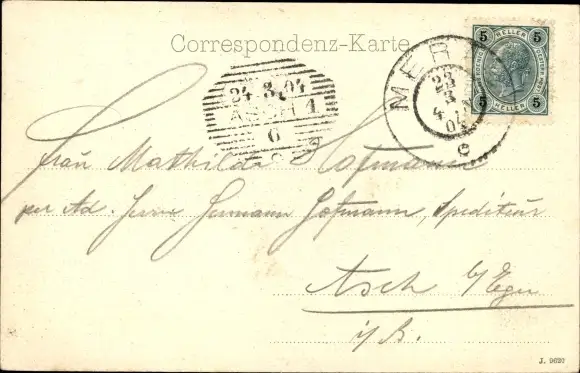 Correspondenz-Karte
5 HELLER 5
5 HELLER 5
MER
23
3
4
04
c
24.3.04
ASCH 1
6
Frau Mathilde Hofmann
per Ad. Herrn Hermann Hofmann, Spediteur
Asch b/Eger
i/B.
J. 9620